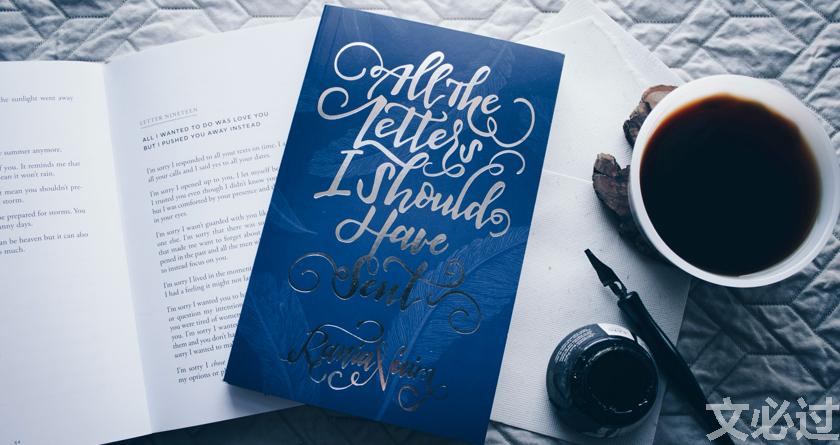 the sunlight went away
summer anymore.
of you. It reminds me that
ean it won't rain.
mean you shouldn't pre-
storm.
be prepared for storms. You
nny days.
can be heaven but it can also
much.
64
LETTER NINETEEN
ALL I WANTED TO DO WAS LOVE YOU
BUT I PUSHED YOU AWAY INSTEAD
I'm sorry I responded to all your texts on time. I
all your calls and I said yes to all your dates.
I'm sorry I opened up to you, I let myself
I trusted you even though I didn't know
but I was comforted by your presence and
in your eyes.
I'm sorry I wasn't guarded with you
one else. I'm sorry that there was
that made me want to forget about
pened in the past and all the men
to instead focus on you.
I'm sorry I lived in the moment
I had a feeling it might not
I'm sorry I wanted you to
or question my intention
you were tired of
them and you don't
sorry I wanted to
I'm sorry I
my options
All the
Letters
I Should
Have
Sent
Rania Naim
文必过